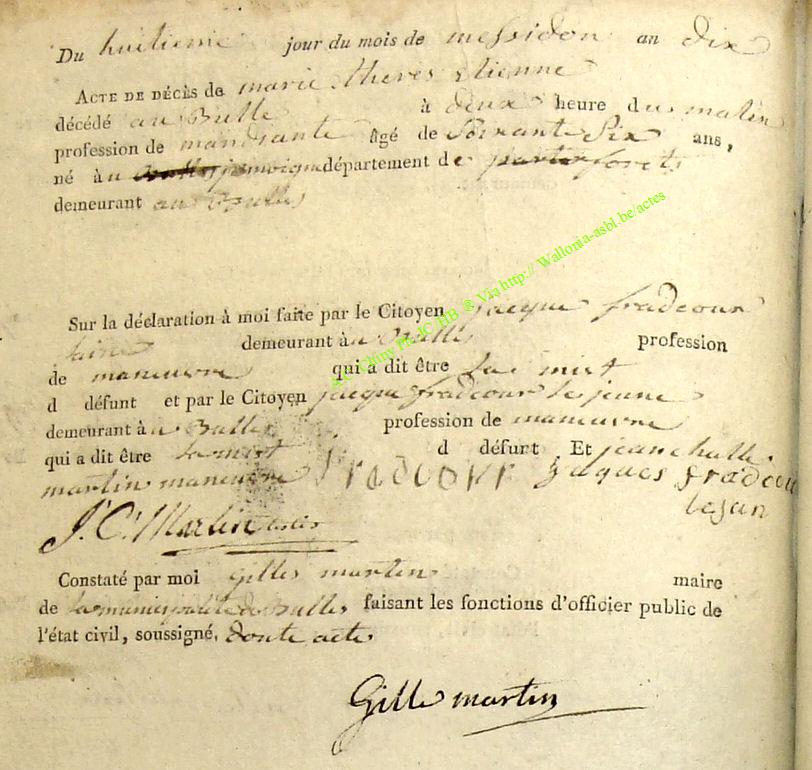 Du huitieme jour du mois de messidor an dix
ACTE DE DÉCÈS de marie theres etienne
décédé au Bulle à deux heure du matin
profession de mandiante âgé de Soixante Six ans,
né à u jamoigne département de forets
demeurant au Bulles
Sur la déclaration à moi faite par le Citoyen jacque fradcour
laine demeurant à u Bulles profession
de maneuvre qui a dit être La mist
d défunt et par le Citoyen jacque fradcour le jeune
demeurant à u Bulles profession de maneuvre
qui a dit être La mist d défurt Et jean
martin maneuvre FRADCOUR Jaques fradcour
lejan
J. C. Martin
Constaté par moi gilles martin maire
de La municipalité de Bulles faisant les fonctions d'officier public de
l'état civil, soussigné, donte acte
Gille martin
Via http:// Wallonia-asbl.be/actes